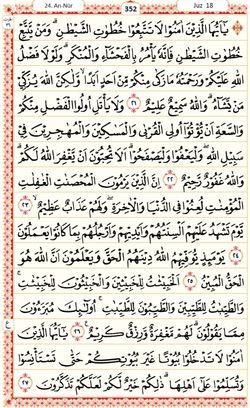 24. An-Nūr 352 Juz 18
يَٰٓأَيُّهَا الَّذِينَ اٰمَنُوا لَا تَتَّبِعُوا خُطُوٰتِ الشَّيْطٰنِ ۗ وَمَنْ يَتَّبِعْ
خُطُوٰتِ الشَّيْطٰنِ فَاِنَّهٗ يَأْمُرُ بِالْفَحْشَآءِ وَالْمُنْكَرِ ۗ وَلَوْلَا فَضْلُ
اللّٰهِ عَلَيْكُمْ وَرَحْمَتُهٗ مَا زَكٰى مِنْكُمْ مِنْ اَحَدٍ اَبَدًا ۙ وَلٰكِنَّ اللّٰهَ يُزَكِّي
مَنْ يَشَآءُ ۗ وَاللّٰهُ سَمِيعٌ عَلِيمٌ ٢١ وَلَا يَأْتَلِ اُولُوا الْفَضْلِ
مِنْكُمْ وَالسَّعَةِ اَنْ يُؤْتُوٓا اُولِي الْقُرْبٰى وَالْمَسٰكِينَ وَالْمُهٰجِرِينَ فِي
سَبِيلِ اللّٰهِ ۖ وَلْيَعْفُوا وَلْيَصْفَحُوا ۗ اَلَا تُحِبُّونَ اَنْ يَغْفِرَ اللّٰهُ لَكُمْ ۗ
وَاللّٰهُ غَفُورٌ رَحِيمٌ ٢٢ اِنَّ الَّذِينَ يَرْمُونَ الْمُحْصَنٰتِ الْغٰفِلٰتِ
الْمُؤْمِنٰتِ لُعِنُوا فِي الدُّنْيَا وَالْاٰخِرَةِ ۖ وَلَهُمْ عَذَابٌ عَظِيمٌ ٢٣
يَوْمَ تَشْهَدُ عَلَيْهِمْ اَلْسِنَتُهُمْ وَاَيْدِيهِمْ وَاَرْجُلُهُمْ بِمَا كَانُوا يَعْمَلُونَ
٢٤ يَوْمَئِذٍ يُوَفِّيهِمُ اللّٰهُ دِينَهُمُ الْحَقَّ وَيَعْلَمُونَ اَنَّ اللّٰهَ هُوَ
الْحَقُّ الْمُبِينُ ٢٥ اَلْخَبِيثٰتُ لِلْخَبِيثِينَ وَالْخَبِيثُونَ لِلْخَبِيثٰتِ ۚ
وَالطَّيِّبٰتُ لِلطَّيِّبِينَ وَالطَّيِّبُونَ لِلطَّيِّبٰتِ ۚ اُولٰٓئِكَ مُبَرَّءُونَ
مِمَّا يَقُولُونَ ۗ لَهُمْ مَغْفِرَةٌ وَرِزْقٌ كَرِيمٌ ٢٦ يَٰٓأَيُّهَا الَّذِينَ
اٰمَنُوا لَا تَدْخُلُوا بُيُوتًا غَيْرَ بُيُوتِكُمْ حَتّٰى تَسْتَأْنِسُوا
وَتُسَلِّمُوا عَلٰٓى اَهْلِهَا ۗ ذٰلِكُمْ خَيْرٌ لَكُمْ لَعَلَّكُمْ تَذَكَّرُونَ ٢٧
ع